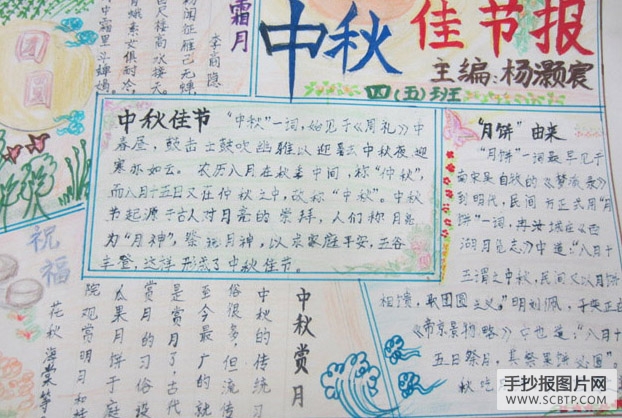 中秋佳节报
主编:杨灏宸
四(五)班
霜月
李商隐
初闻征雁已无蝉
百尺楼高水接天
青娥素女俱耐冷
月中霜里斗婵娟。
团圆
中秋佳节
"中秋"一词,始见于《周礼》中
春昼,鼓击土鼓吹幽雅以迎暑云中秋夜迎
寒亦如云。农历八月在秋季中间,称"仲秋",
而八月十五日又在仲秋之中,故称"中秋"。中秋
节起源于古人对月亮的崇拜,人们称月亮
为"月神",祭祀月神,以求家庭平安,五谷
丰登,这样形成了中秋佳节。
"月饼"由来
"月饼"一词最早见于
南宋吴自牧的《梦粱录》
到明代,民间才正式用"月
饼"一词,
湖月览志》中道:"八月十
五谓之中秋,民间又以月饼
相馈,取团圆之义。"明刘侗、于奕正
《帝京景物略》中也道:"八月十
五日祭月,其祭果饼必圆"
祝福
中秋赏月
中秋的传统习
俗很多,但流传
至今最广的就
是赏月了,古代
赏月的习俗设
瓜果月饼于庭
院观赏明月和
花秋海棠等
手抄报图片网
WWW.SCBTP.COM